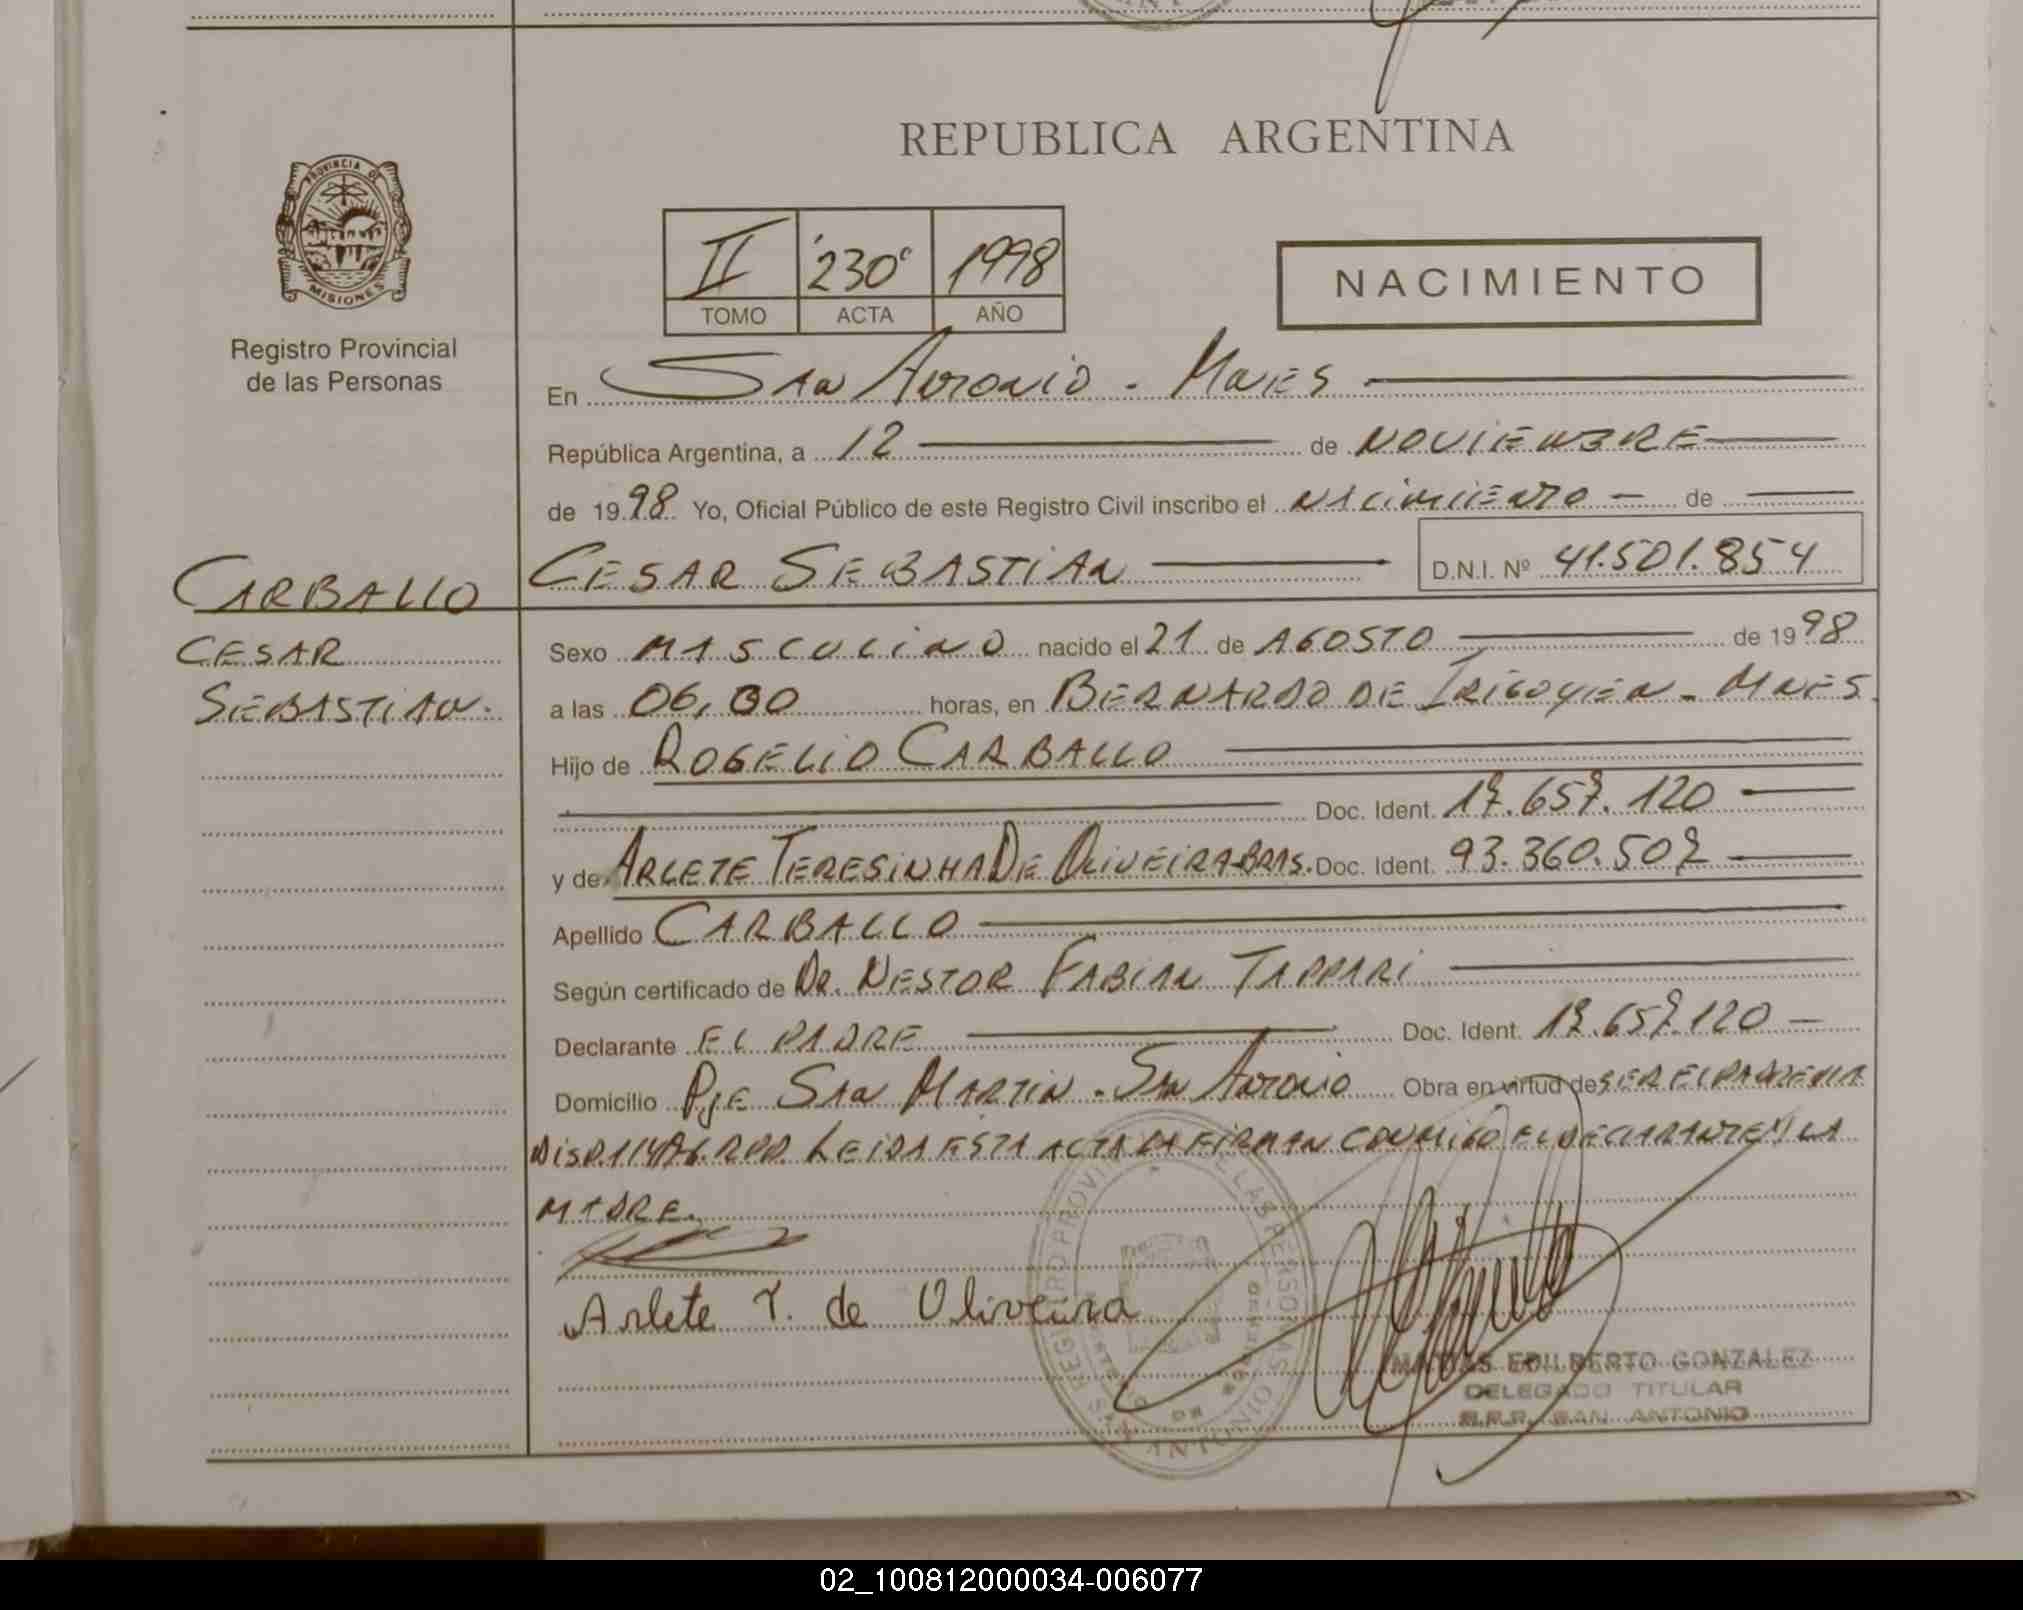 REPUBLICA ARGENTINA
PROVINCIA DE
MISIONES
Registro Provincial
de las Personas
II 230º 1998
TOMO ACTA AÑO
NACIMIENTO
En San Antonio - Mnes
República Argentina, a 12 de NOVIEMBRE
de 1998 Yo, Oficial Público de este Registro Civil inscribo el NACIMIENTO - de
CARBALLO
CESAR
SEBASTIAN.
CESAR SEBASTIAN D.N.I. Nº 41.501.854
Sexo MASCULINO nacido el 21 de AGOSTO de 1998
a las 06,30 horas, en BERNARDO DE IRIGOYEN - MNES.
Hijo de ROGELIO CARBALLO
Doc. Ident. 17.657.120
y de ARLETE TERESINHA DE OLIVEIRA-BRAS. Doc. Ident. 93.360.507
Apellido CARBALLO
Según certificado de DR. NESTOR FABIAN TAPPARI
Declarante EL PADRE Doc. Ident. 17.657.120 -
Domicilio Pje SAN MARTIN - San Antonio Obra en virtud de SER EL PADRE
LEIDA ESTA ACTA LA FIRMAN CONMIGO EL DECLARANTE Y LA
MADRE.
Arlete T. de Oliveira
REGISTRO PROVINCIAL DE LAS PERSONAS
SAN ANTONIO
MATIAS EDILBERTO GONZALEZ
DELEGADO TITULAR
R.P.P. SAN ANTONIO
02_100812000034-006077